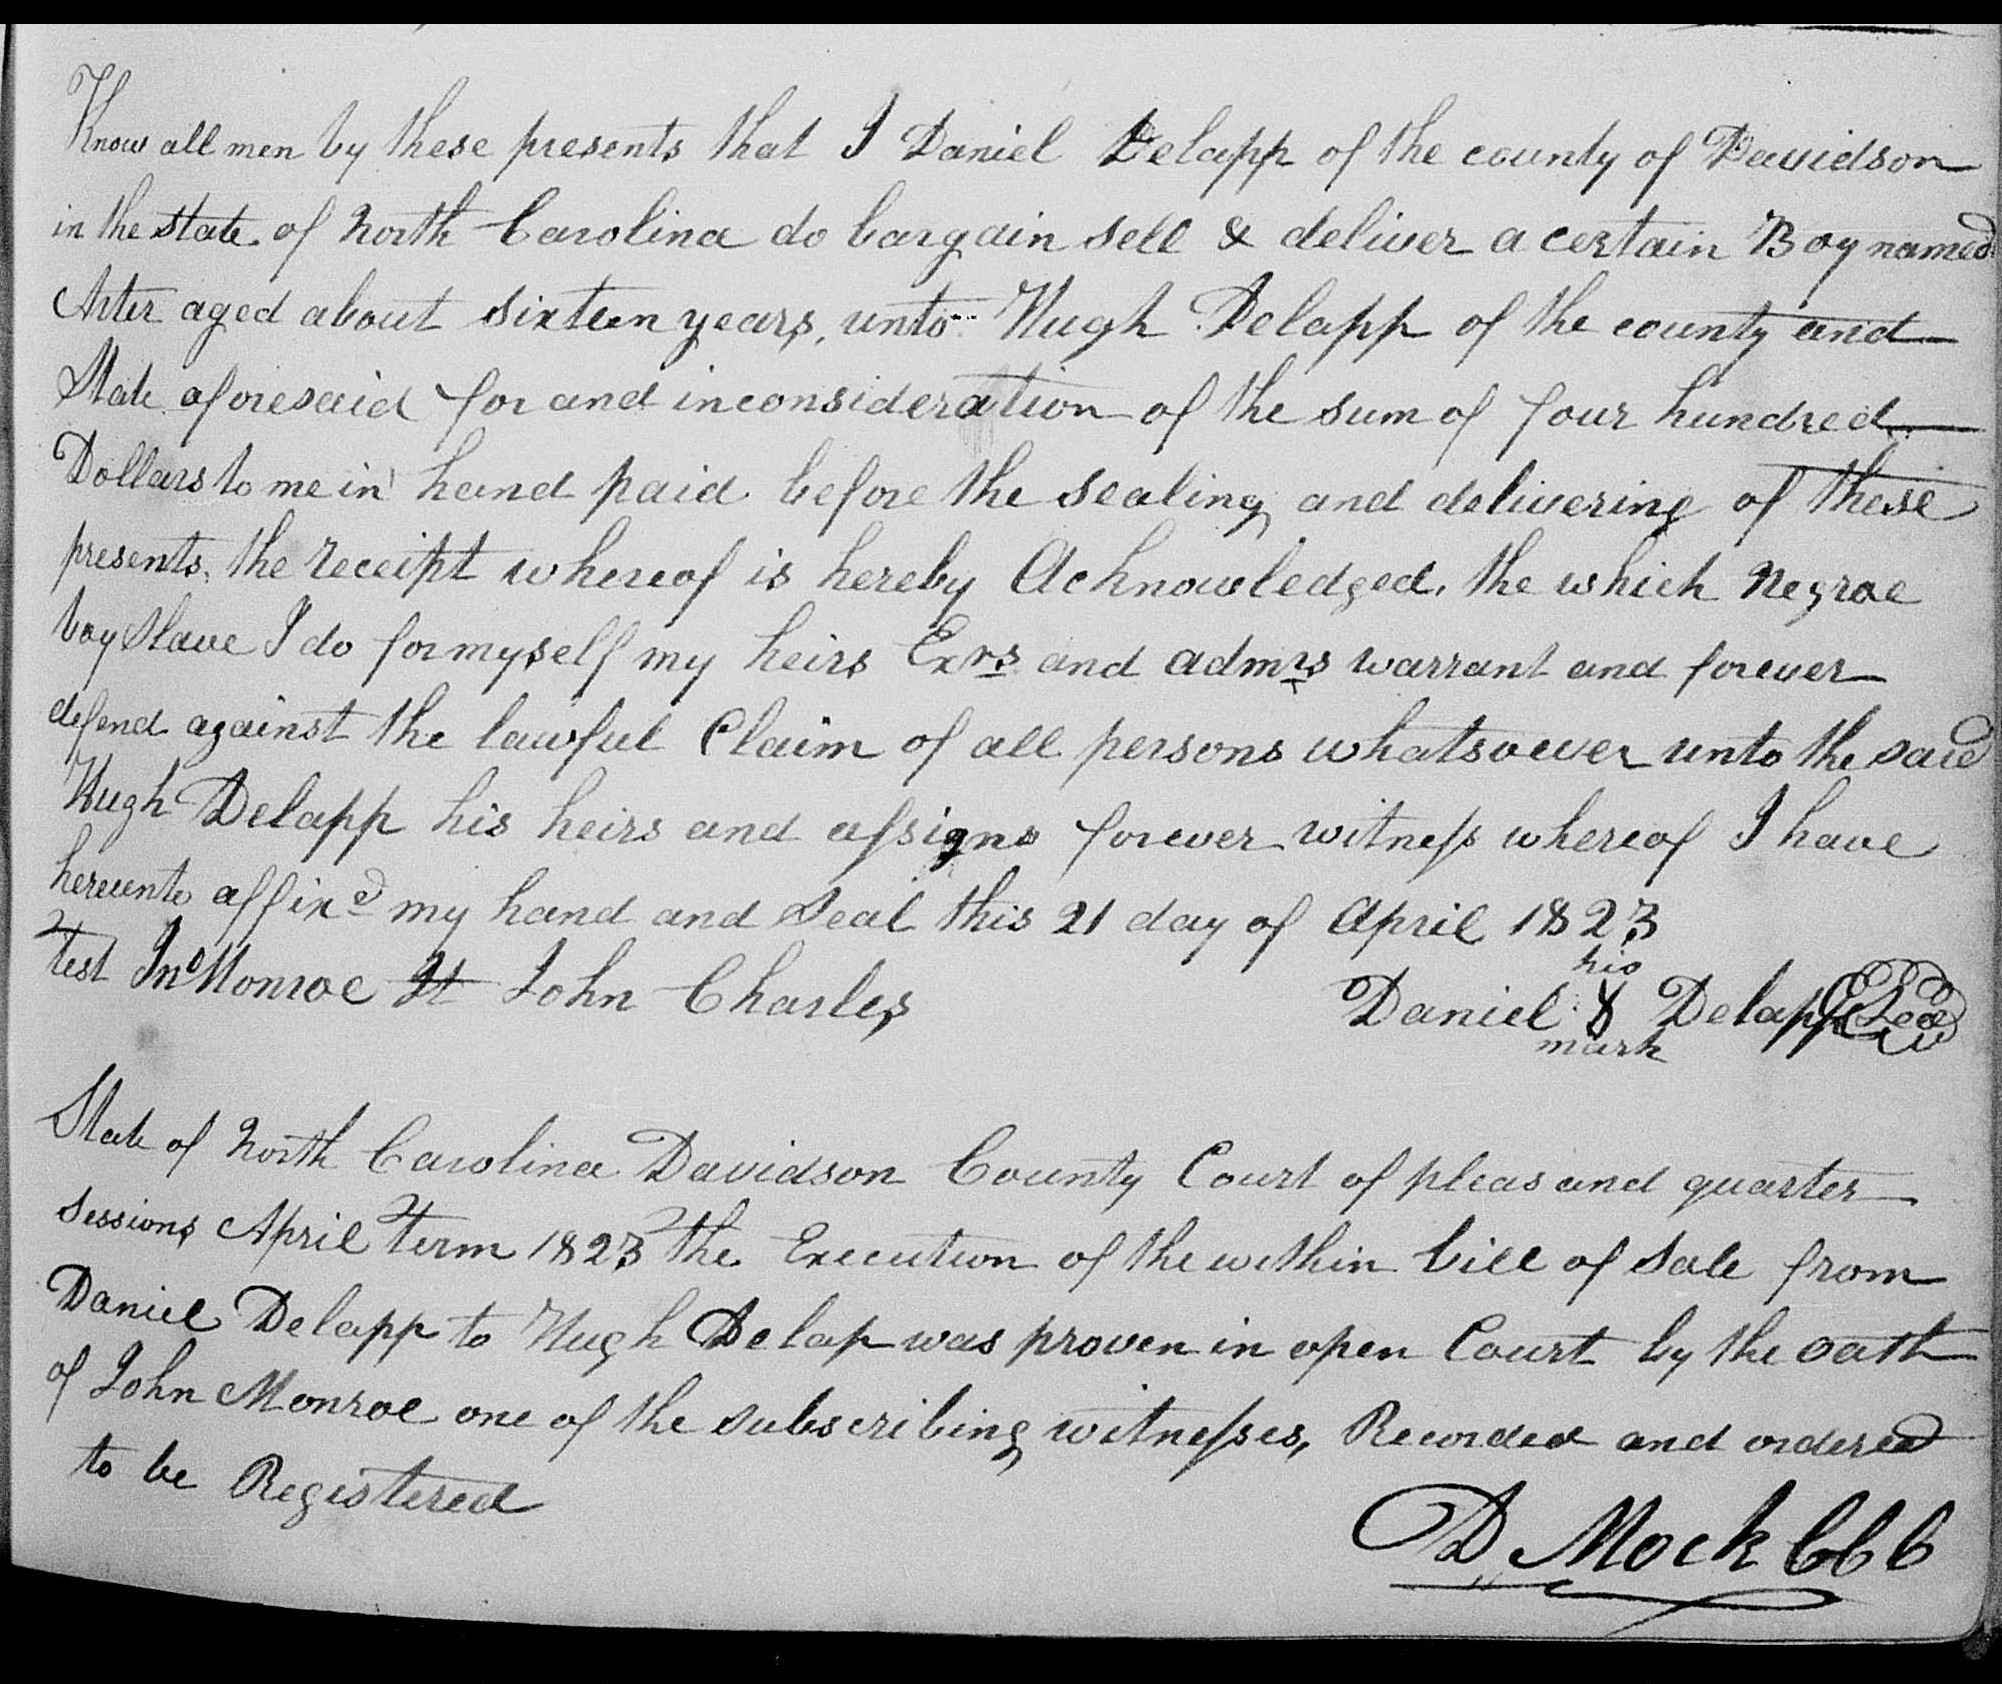 Know all men by these presents that I Daniel Delapp of the county of Davidson
in the state of North Carolina do bargain sell & deliver a certain Boy named
Arter aged about sixteen years, unto Hugh Delapp of the county and
State aforesaid for and inconsideration of the sum of four hundred
Dollars to me in hand paid before the sealing and delivering of these
presents, the receipt whereof is hereby Acknowledged, the which Negroe
boy slave I do for myself my heirs Exrs and admrs warrant and forever
defend against the lawful Claim of all persons whatsoever unto the said
Hugh Delapp his heirs and assigns forever witness whereof I have
hereunto affixd my hand and seal this 21 day of April 1823
test Jno Monroe John Charles
his
Daniel Delapp Seal
mark
State of North Carolina Davidson County Court of pleas and quarter
sessions April term 1823 the Execution of the within bill of sale from
Daniel Delapp to Hugh Delap was proven in open Court by the oath
of John Monroe one of the subscribing witnesses, Recorded and ordered
to be Registered
D. Mock CCC